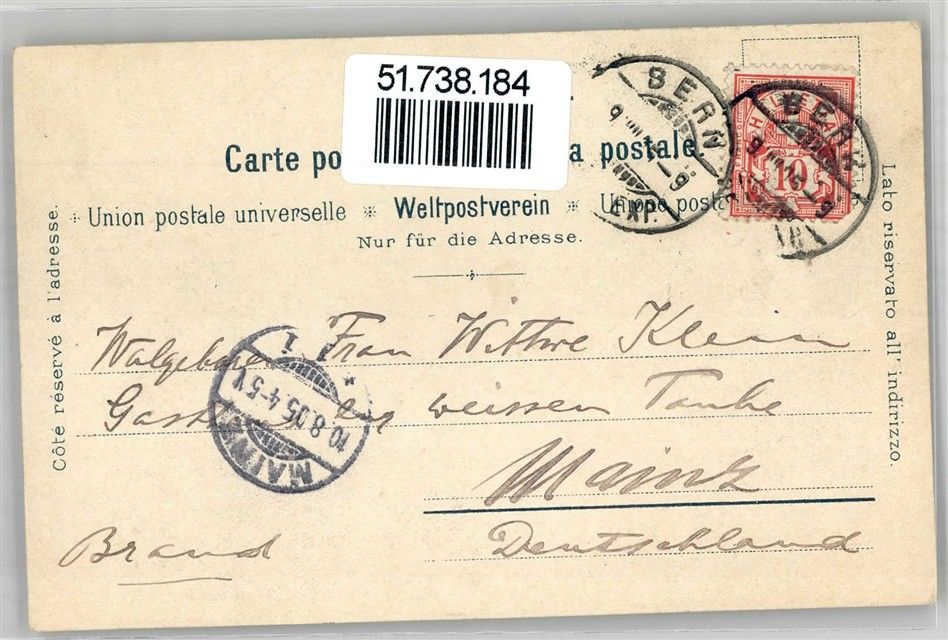 51.738.184
Carte po a postale.
Union postale universelle * Weltpostverein * Unione posta
Nur für die Adresse.
Côté réservé à l'adresse.
Lato riservato all' indirizzo.
BERN
EXP.
BERN
10
MAINZ
10.8.05.4-5V
Frau Wittwe Klein
weissen Taube
Mainz
Deutschland
Brand